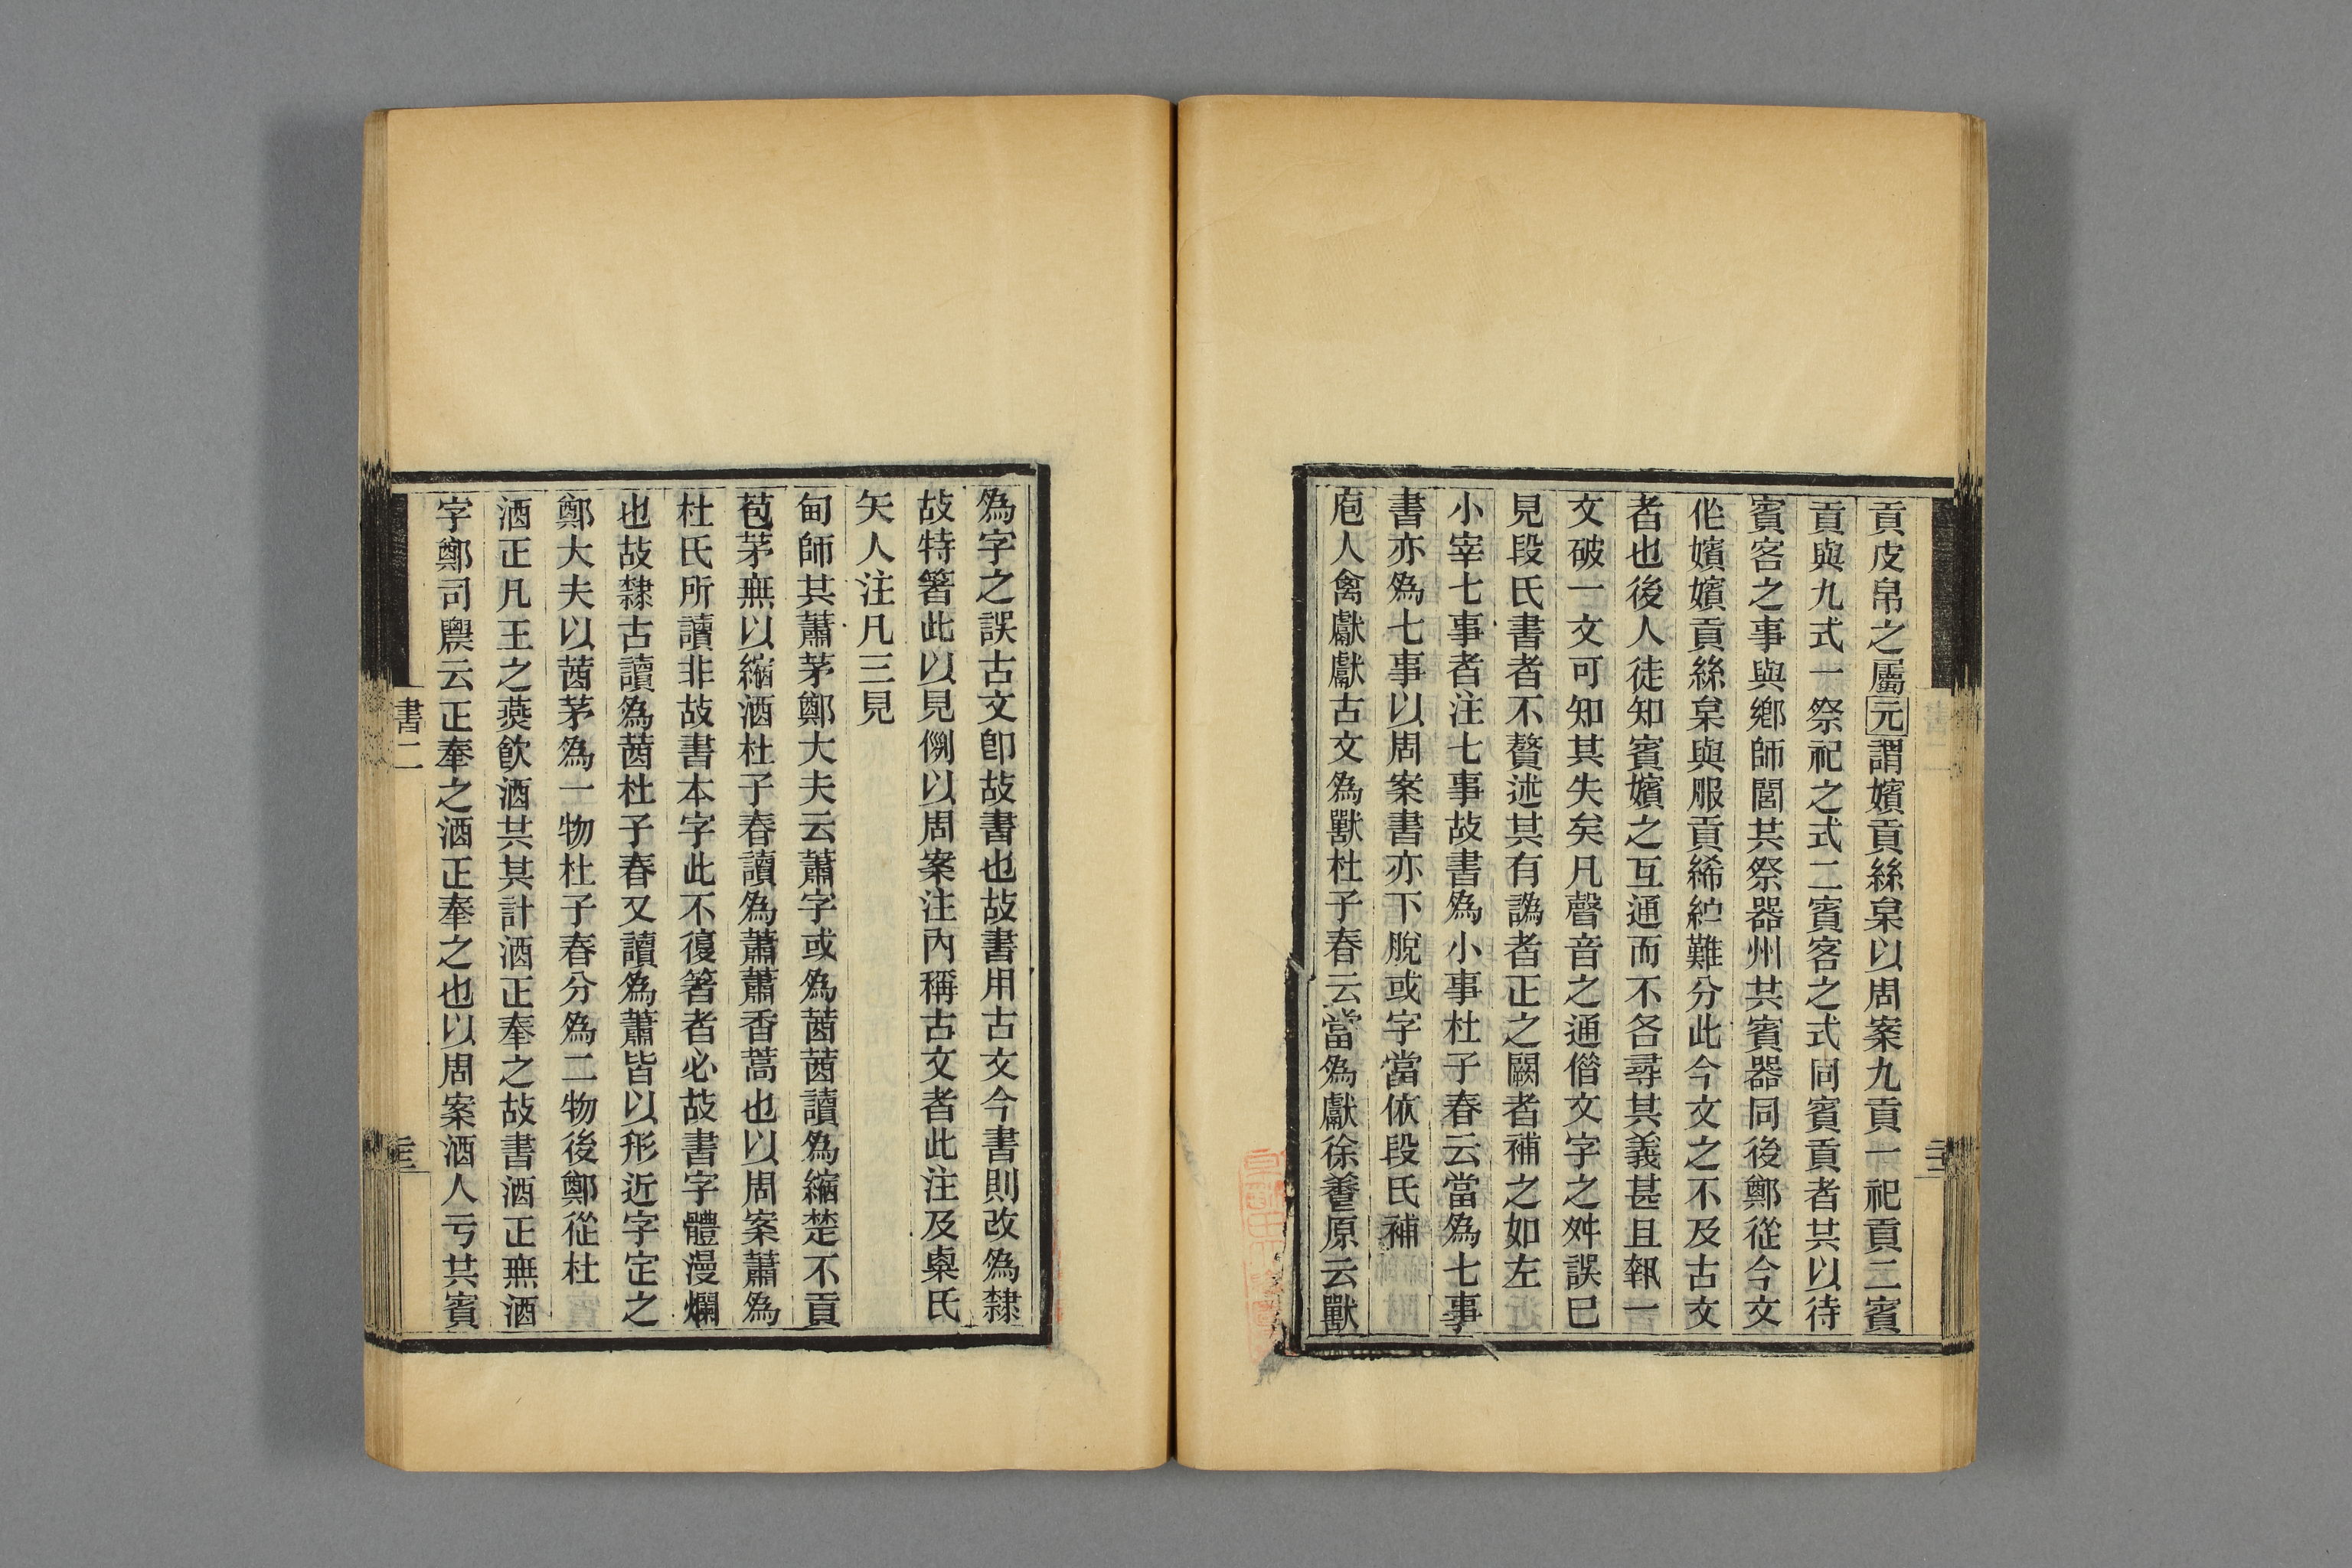 貢皮帛之屬元謂嬪貢絲枲以周案九貢一祀貢二賓
貢與九式一祭祀之式二賓客之式同賓貢者共以待
賓客之事與鄉師閭共祭器州共賓器同後鄭從今文
作嬪嬪貢絲枲與服貢絺紵難分此今文之不及古文
者也後人徒知賓嬪之互通而不各尋其義甚且執一
文破一文可知其失矣凡聲音之通借文字之舛誤已
見段氏書者不贅述其有譌者正之闕者補之如左
小宰七事者注七事故書為小事杜子春云當為七事
書亦為七事以周案書亦下脫或字當依段氏補
庖人禽獻獻古文為獸杜子春云當為獻徐養原云獸
為字之誤古文卽故書也故書用古文今書則改為隸
故特箸此以見例以周案注內稱古文者此注及㮚氏
矢人注凡三見
甸師其蕭茅鄭大夫云蕭字或為莤莤讀為縮楚不貢
苞茅無以縮酒杜子春讀為蕭蕭香蒿也以周案蕭為
杜氏所讀非故書本字此不復箸者必故書字體漫爛
也故隸古讀為莤杜子春又讀為蕭皆以形近字定之
鄭大夫以莤茅為一物杜子春分為二物後鄭從杜
酒正凡王之燕飲酒共其計酒正奉之故書酒正無酒
字鄭司農云正奉之酒正奉之也以周案酒人亏共賓
書二